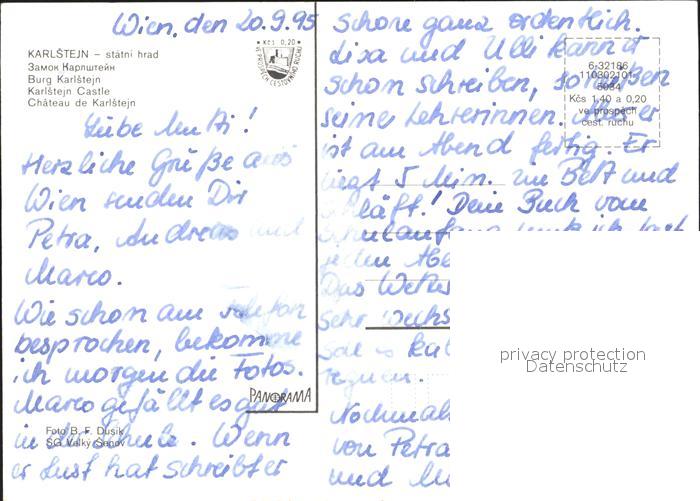 Wien, den 20.9.95
KARLŠTEJN – státní hrad
Замок Карлштейн
Burg Karlštejn
Karlštejn Castle
Château de Karlštejn
Kčs 0,20
VE PROSPĚCH CESTOVNÍHO RUCHU
Liebe Mutti!
Herzliche Grüße aus
Wien senden Dir
Petra, Andreas und
Marco.
Wie schon am Telefon
besprochen, bekomme
ich morgen die Fotos.
Marco gefällt es gut
in Schule. Wenn
er Lust hat schreibt er
Foto B. F. Dusík
SG Velký Šenov
PANORAMA
schone ganz ordentlich.
Lisa und Ulli kann it
schon schreiben, so
seine Lehrerinnen. Aber er
ist am Abend fertig. Er
liegt 5 Min. im Bett und
schläft! Dein Buch vom
Schulanfang
jeden Abe
Das Wetter
sehr wechs
kal
regnen.
Nochmals
von Petra
und
6-32186
110302101
5034
Kčs 1,40 a 0,20
ve prospěch
cest. ruchu
privacy protection
Datenschutz